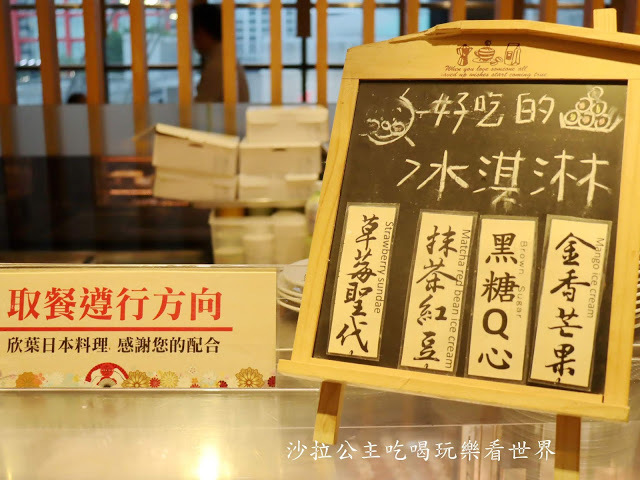 取餐遵行方向
欣葉日本料理 感謝您的配合
When you love someone all
saved up wishes start coming true
好吃的
冰淇淋
草莓聖代
Strawberry sundae
抹茶紅豆
Matcha red bean ice cream
黑糖Q心
Brown Sugar
金香芒果
Mango ice cream
沙拉公主吃喝玩樂看世界